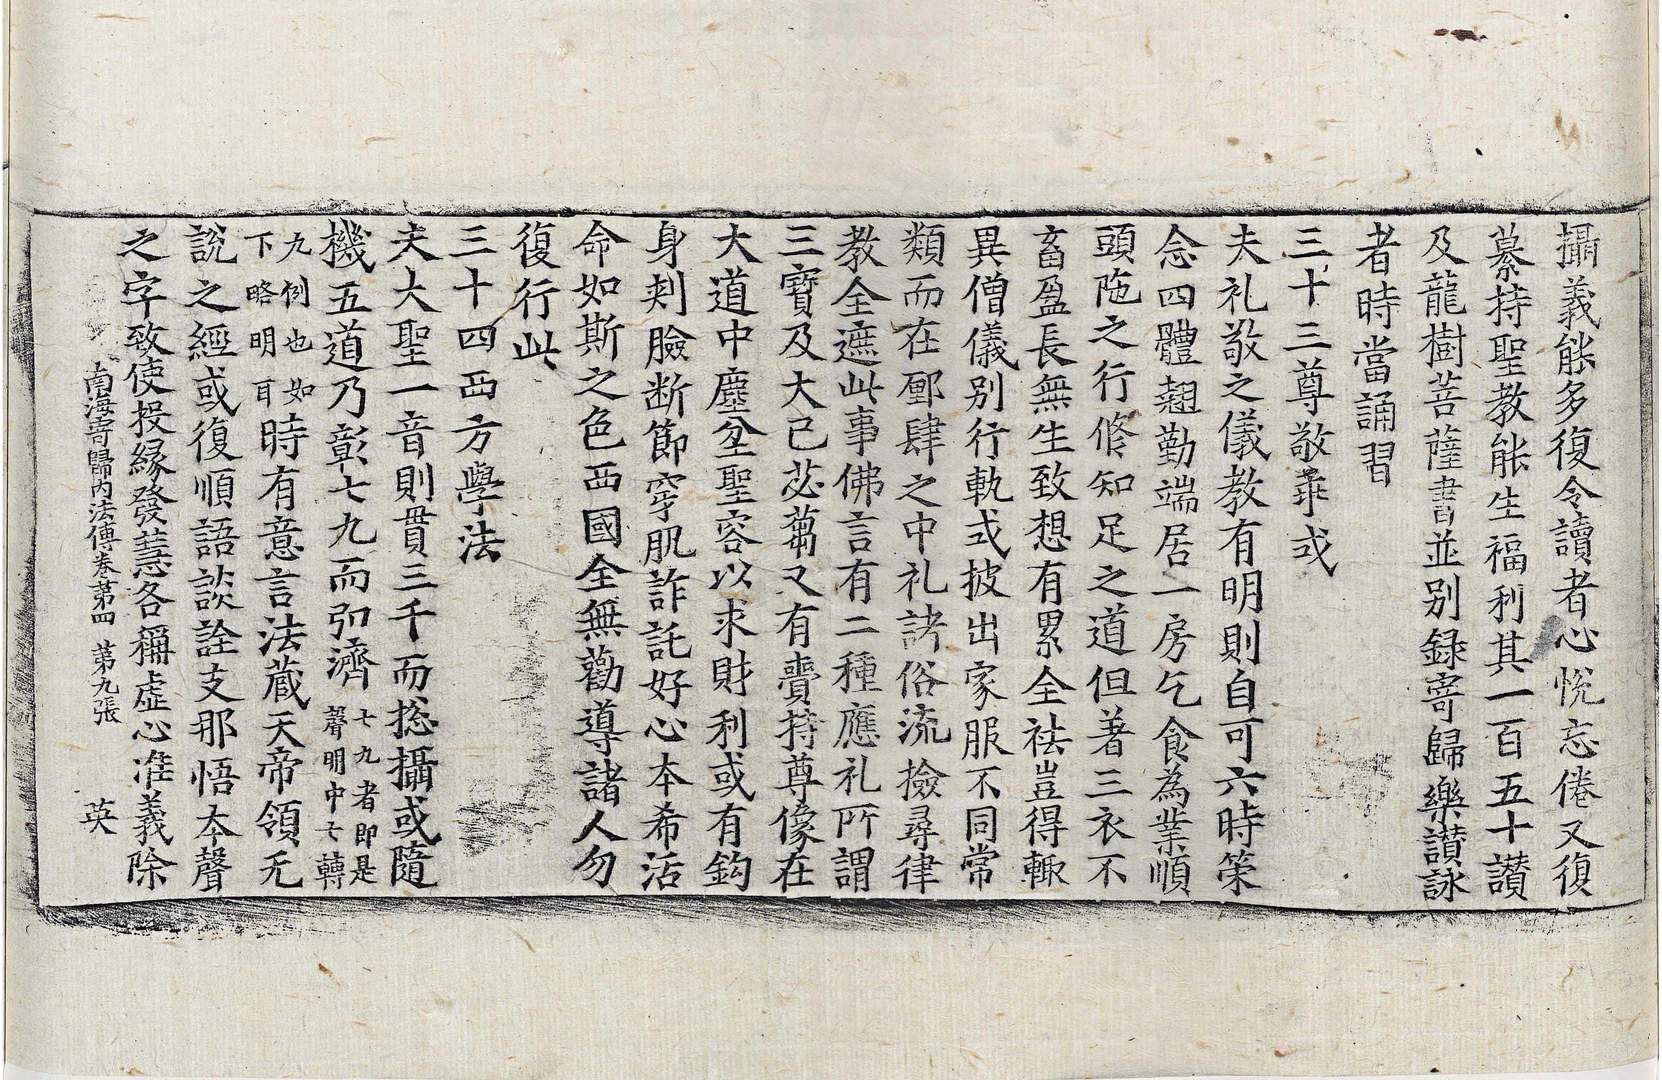 攝義能多復令讀者心悅忘倦又復
纂持聖教能生福利其一百五十讃
及龍樹菩薩書並別録寄歸樂讃詠
者時當誦習
三十三尊敬乖式
夫礼敬之儀教有明則自可六時策
念四體翹勤端居一房乞食為業順
頭陁之行修知足之道但著三衣不
畜盈長無生致想有累全祛豈得輙
異僧儀別行軌式披出家服不同常
類而在鄽肆之中礼諸俗流撿尋律
教全遮此事佛言有二種應礼所謂
三寶及大己苾蒭又有賷持尊像在
大道中塵坌聖容以求財利或有鈎
身刾臉断節穿肌詐託好心本希活
命如斯之色西國全無勸導諸人勿
復行此
三十四西方學法
夫大聖一音則貫三千而揔攝或隨
機五道乃彰七九而弘濟 七九者即是聲明中七轉
九例也如下略明耳 時有意言法藏天帝領无
說之經或復順語談詮支那悟本聲
之字致使投縁發慧各稱虛心准義除
南海寄歸内法傳卷第四 第九張 英